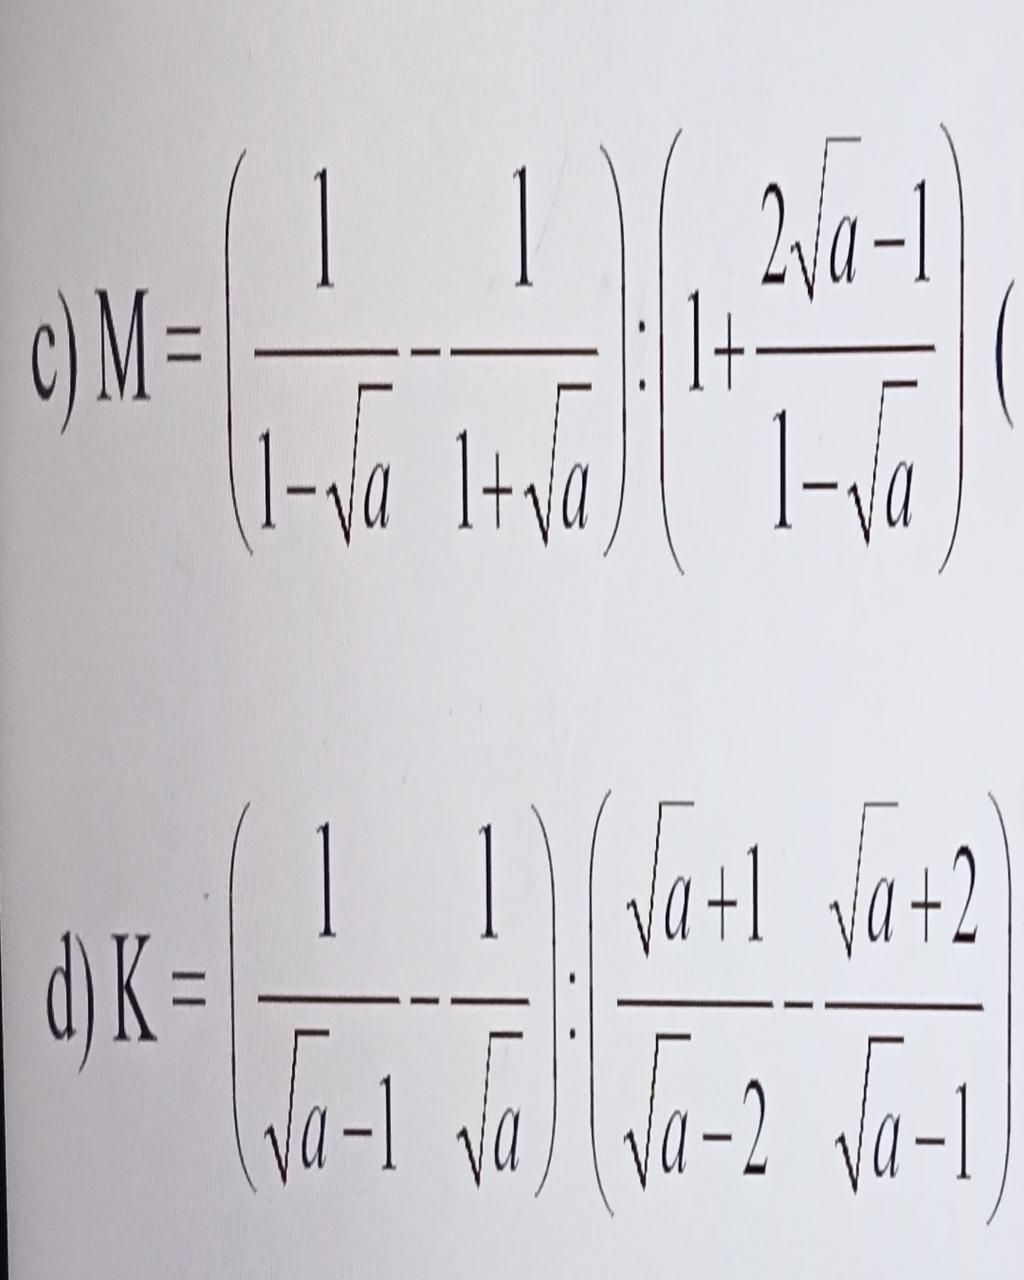 c) M = \left( \frac{1}{1-\sqrt{a}} - \frac{1}{1+\sqrt{a}} \right) : \left( 1 + \frac{2\sqrt{a}-1}{1-\sqrt{a}} \right) (
d) K = \left( \frac{1}{\sqrt{a}-1} - \frac{1}{\sqrt{a}} \right) : \left( \frac{\sqrt{a}+1}{\sqrt{a}-2} - \frac{\sqrt{a}+2}{\sqrt{a}-1} \right)